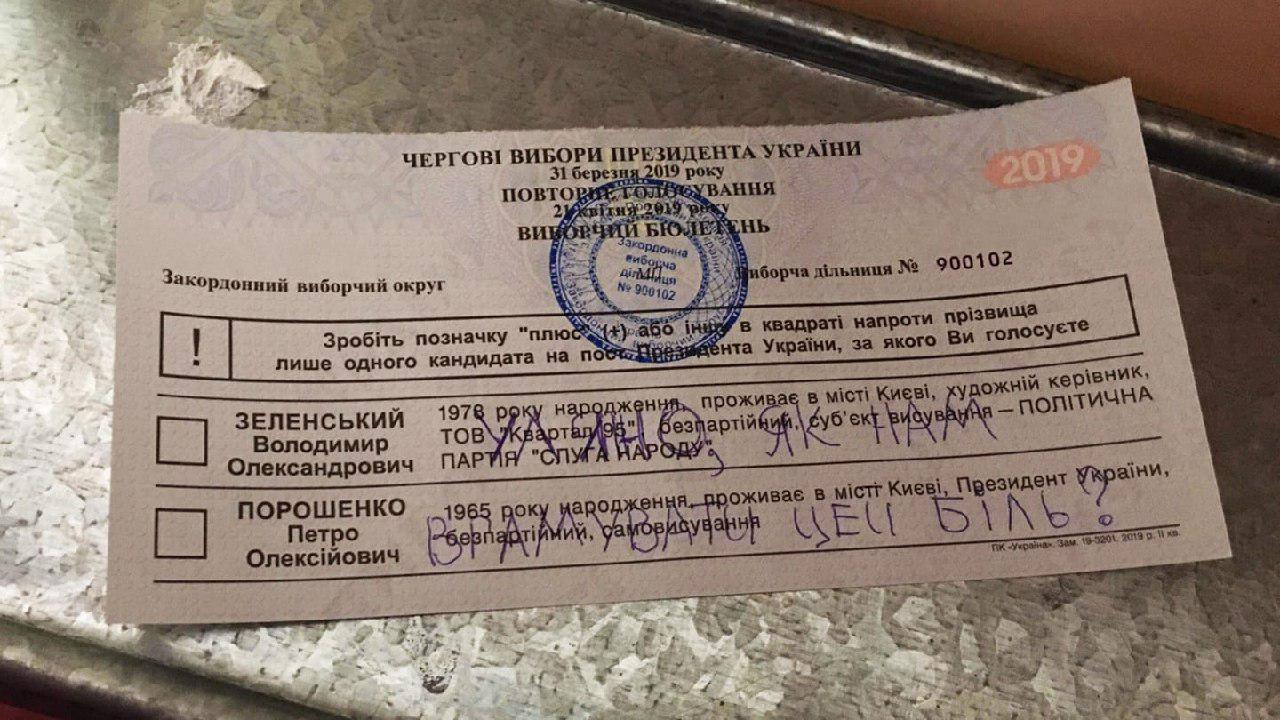 ЧЕРГОВІ ВИБОРИ ПРЕЗИДЕНТА УКРАЇНИ
31 березня 2019 року
2019
ПОВТОРНЕ ГОЛОСУВАННЯ
21 квітня 2019 року
ВИБОРЧИЙ БЮЛЕТЕНЬ
Закордонна
виборча
дільниця
№ 900102
МП
Закордонний виборчий округ
Виборча дільниця № 900102
! Зробіть позначку "плюс" (+) або іншу в квадраті напроти прізвища
лише одного кандидата на пост Президента України, за якого Ви голосуєте
ЗЕЛЕНСЬКИЙ
Володимир
Олександрович
1978 року народження, проживає в місті Києві, художній керівник,
ТОВ "Квартал 95", безпартійний, суб'єкт висування – ПОЛІТИЧНА
ПАРТІЯ "СЛУГА НАРОДУ"
ЯК НАМ
ПОРОШЕНКО
Петро
Олексійович
1965 року народження, проживає в місті Києві, Президент України,
безпартійний, самовисування
ЦЕЙ БІЛЬ?
ПК «Україна». Зам. 19-3201. 2019 р. II кв.